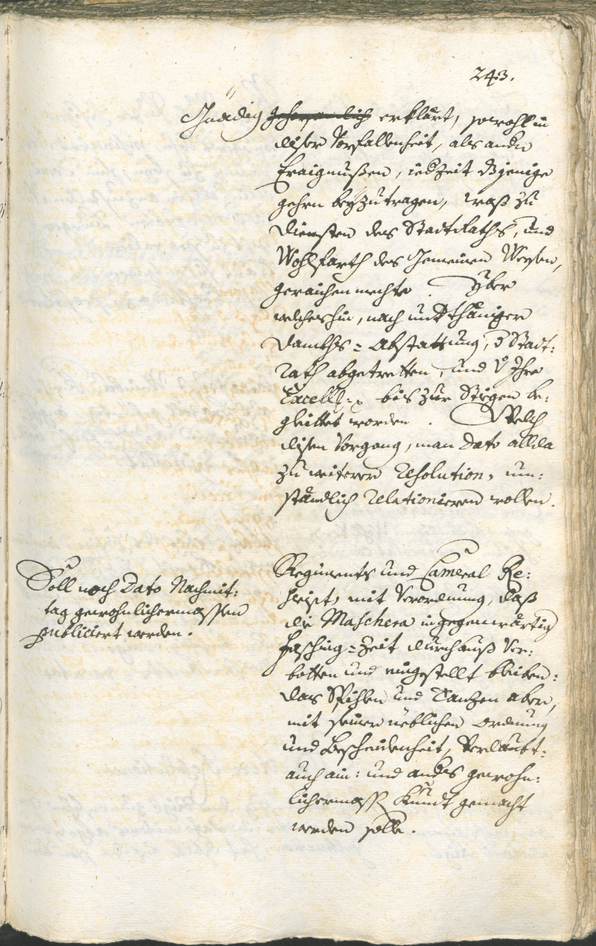 243.
Gnädig erklärt, sowohl in
diser Vorfallenheit, als anden
Eraignußen, iedzeit dßjenige
gehrn beyzutragen, waß zu
Diensten des StadtRaths, und
Wohlfarth des Gemeinen Weesen,
geraichen mechte. Yber
welches hin, nach undterthäniger
Dankhs=Abstattung, d Stadt:
rath abgetretten, und v Ihre
Excell: bis zur Stiegen be:
glaittet worden. Welch
disen Vorgang, man dato allda
zu weiterer Resolution, um:
ständlich relationieren wollen.
Soll noch dato Nachmit:
tag gewohnlichermassen
publiciert werden.
Regiments und Cameral Re:
script, mit Verordnung, daß
die Maschera in gegenwärtig
Fasching=Zeit durchauß ver:
botten und eingestellt bleiben:
das Spihlen und Tanzen aber,
mit seiner üeblichen Ordnung
und Bescheidenheit, verlaubt:
auch ain: und andes gewohn:
lichermass kundt gemacht
werden solle.